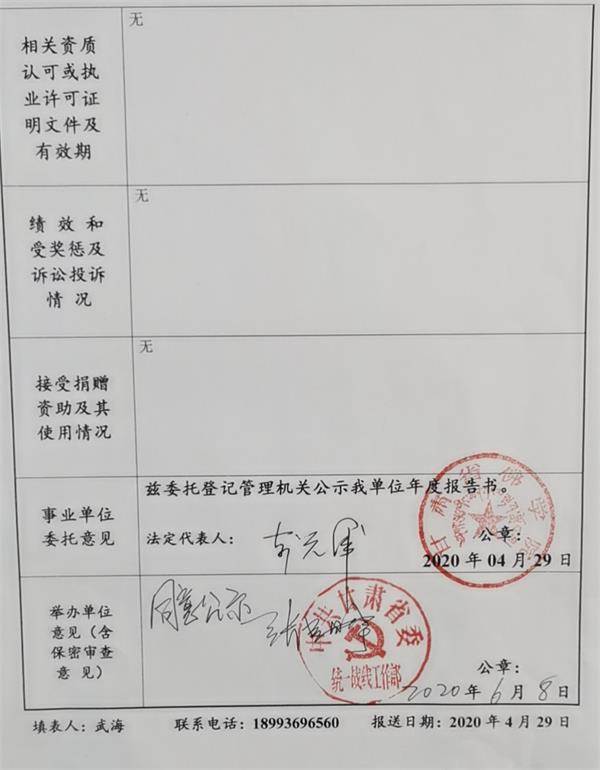 相关资质
认可或执
业许可证
明文件及
有效期
无
绩效和
受奖惩及
诉讼投诉
情况
无
接受捐赠
资助及其
使用情况
无
事业单位
委托意见
兹委托登记管理机关公示我单位年度报告书。
法定代表人：
公章：
2020年04月29日
甘肃省佛学院
举办单位
意见（含
保密审查
意见）
同意公示
中共甘肃省委
统一战线工作部
公章：
2020年6月8日
填表人：武海 联系电话：18993696560 报送日期：2020年4月29日